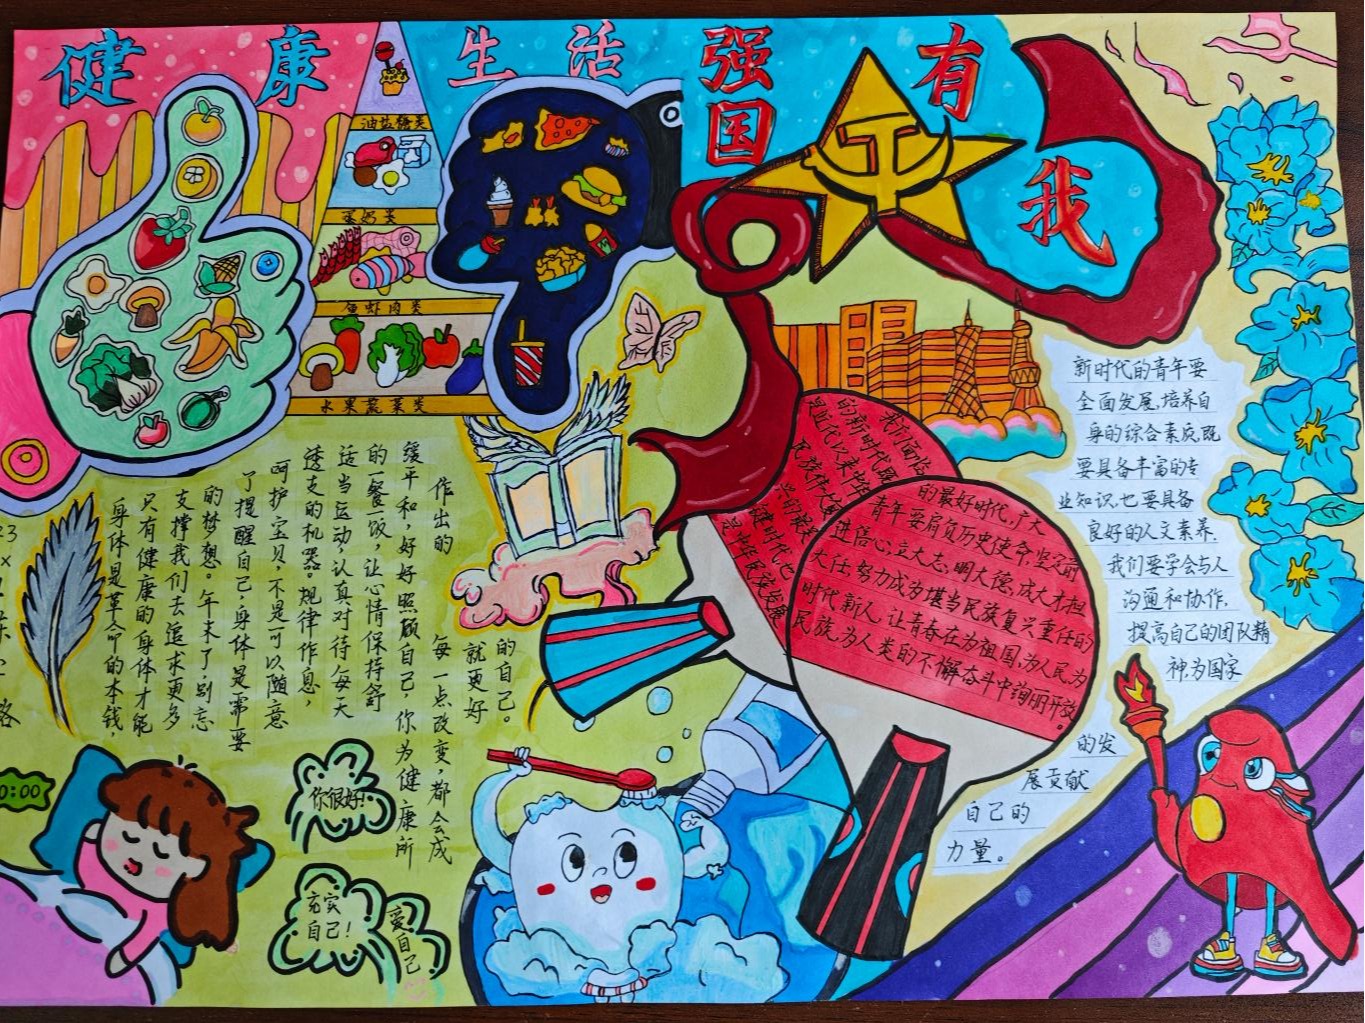 健康生活
强国有我
油盐糖类
蛋奶类
鱼虾肉类
水果蔬菜类
身体是革命的本钱，
只有健康的身体才能
支撑我们去追求更多
的梦想。年末了，别忘
了提醒自己，身体是需要
呵护宝贝，不是可以随意
透支的机器。规律作息，
适当运动，认真对待每天
的一餐饭，让心情保持舒
缓平和，好好照顾自己，你为健康所
作出的每一点改变，都会成
就更好
的自己。
我们面临
的新时代，既
是近代以来中华
民族伟大
兴的最
键时代，也
是中华民族发展
的最好时代，广大
青年要肩负历史使命，坚定前
进信心，立大志、明大德、成大才、担
大任，努力成为堪当民族复兴重任的
时代新人，让青春在为祖国、为人民、为
民族、为人类的不懈奋斗中绚丽开放。
新时代的青年要
全面发展，培养自
身的综合素质，既
要具备丰富的专
业知识，也要具备
良好的人文素养。
我们要学会与人
沟通和协作，
提高自己的团队精
神，为国家
的发
展贡献
自己的
力量。
0:00
你很好！
充实
自己！
爱自己